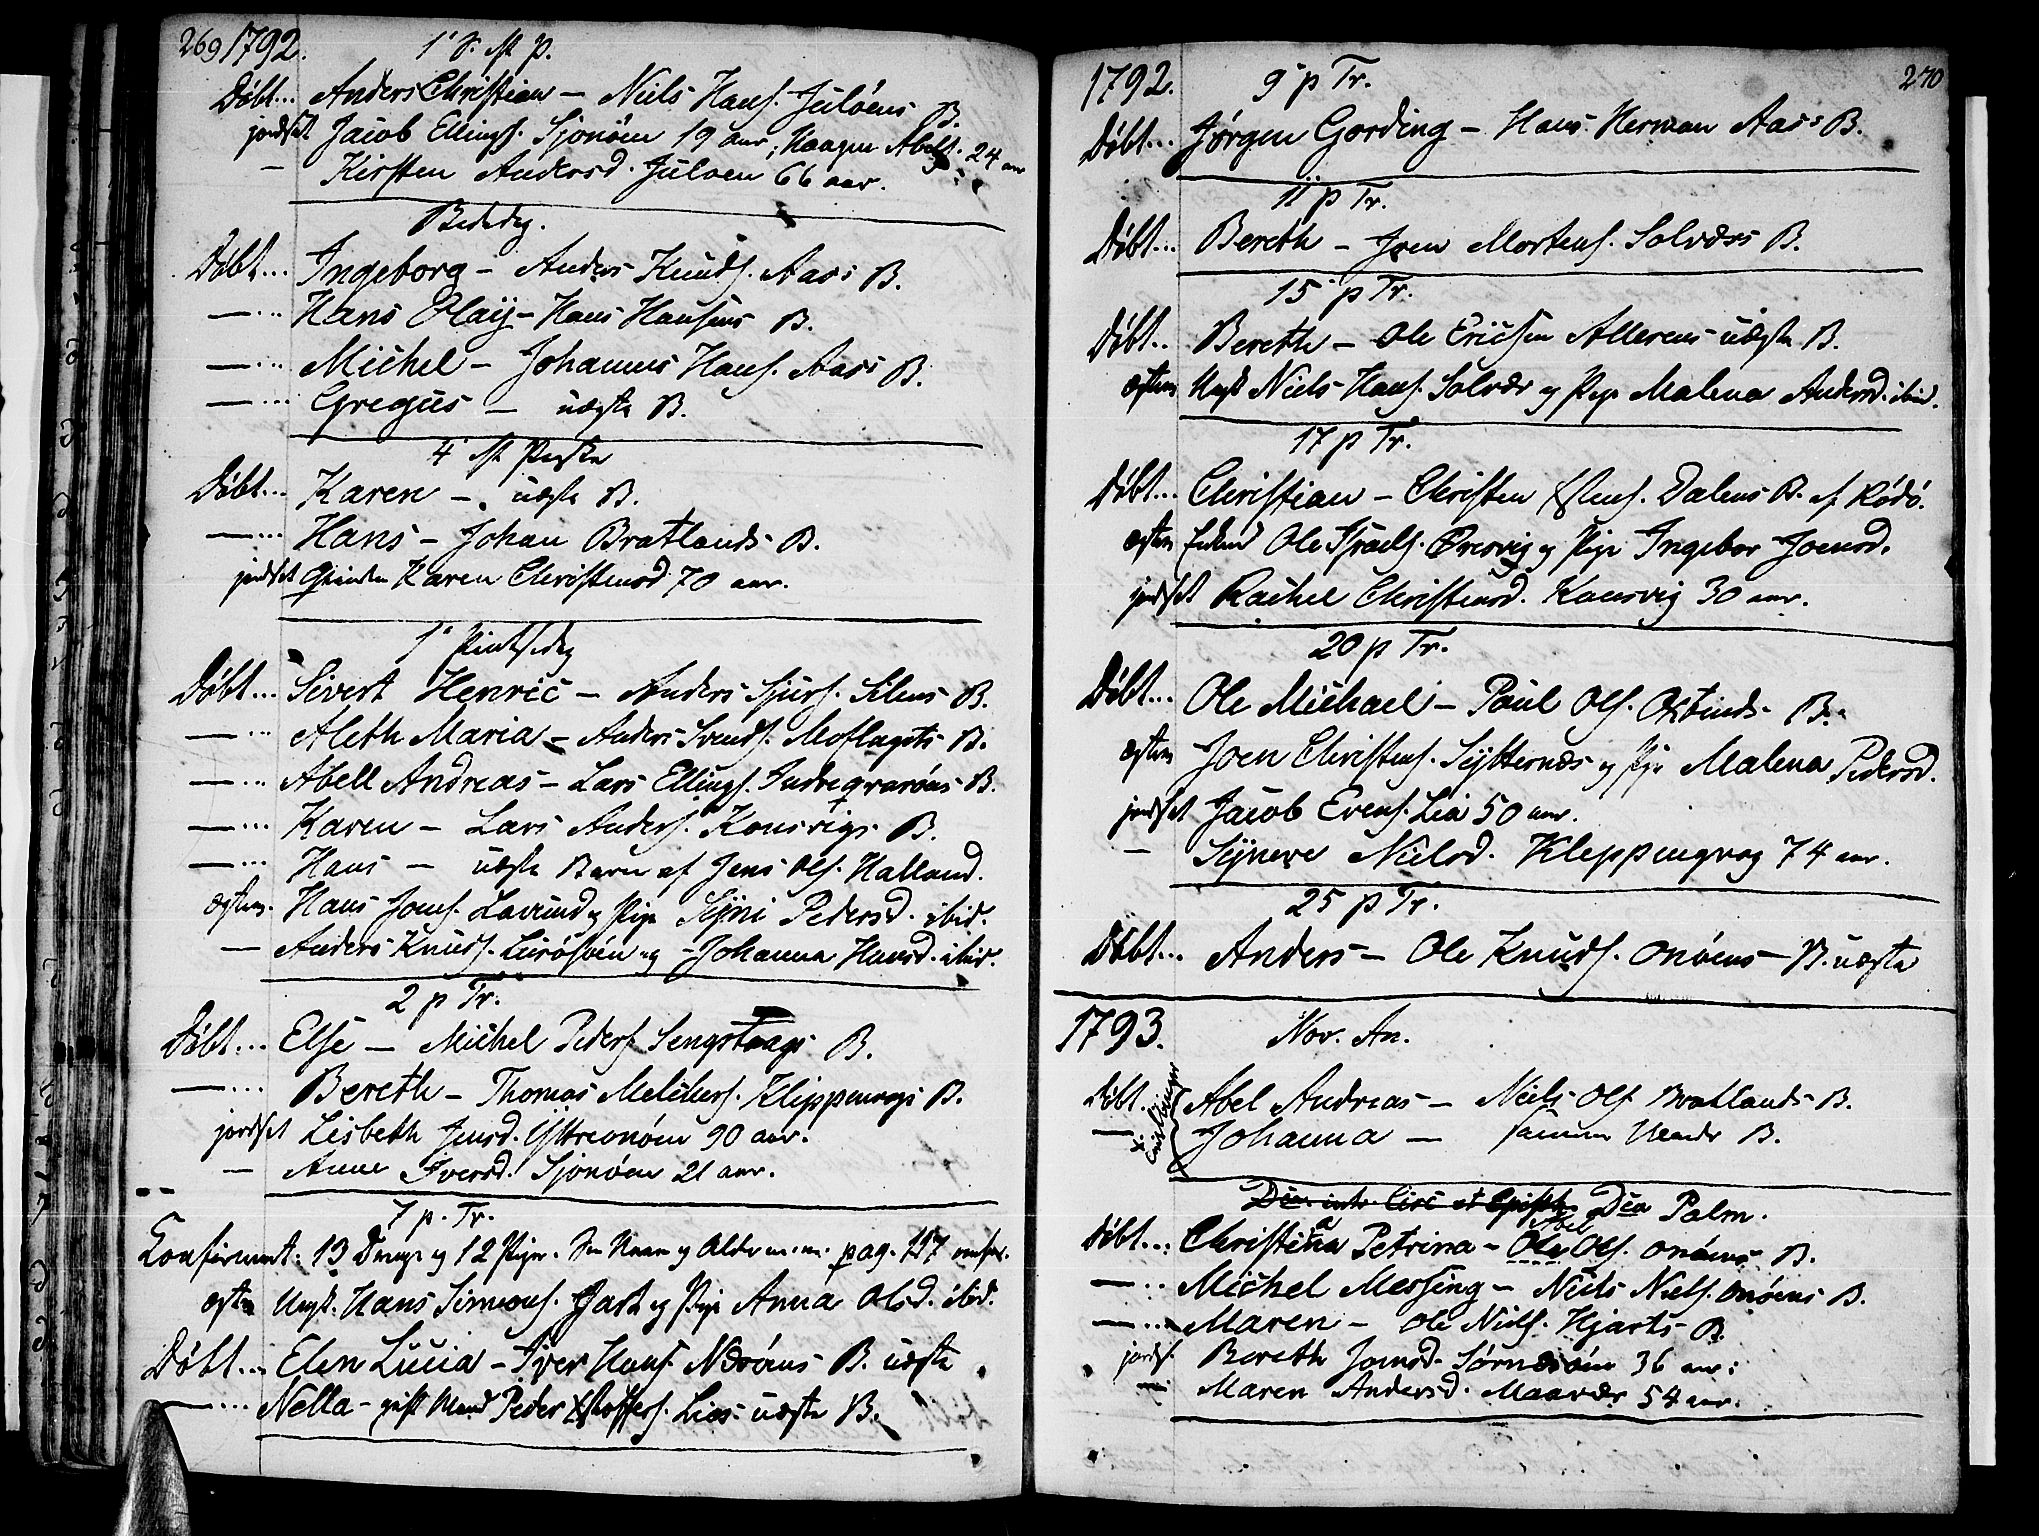 269 1792. 1' S. p P.
Döbt... Anders Christian - Niels Hans. Julöens B.
jordset Jacob Ellings. Sjonöen 19 aar; Haagen Abels. 24 aar
— Kirsten Andersd. Juloen 66 aar.
Bededag.
Döbt... Ingeborg - Anders Knuds. Aas: B.
—... Hans Olay - Hans Hansens B.
—... Michel - Johannes Hans. Aas: B.
—... Gregus - uægte B.
4' p Paaske
Döbt... Karen - uægte B.
—... Hans - Johan Bratlands B.
jordset Qvinden Karen Christensd 70 aar.
1' Pintsedag
Döbt... Sivert Henric - Anders Sjurs. Silens B.
—... Aleth Maria - Anders Svends. Moflagets B.
—... Abell Andreas - Lars Ellings. Indreqvaröens B.
—... Karen - Lars Anders. Konsvigs B.
—... Hans - uægte Barn af Jens Ols. Halland.
ægtev. Hans Joens. Lovund og Pige Syni Pedersd. ibid.
— Anders Knuds. Luröven og Johanna Hansd. ibid.
2 p Tr.
Döbt... Else - Michel Peders. Sengstvags B.
—... Bereth - Thomas Melchers. Kleppenvags B.
jordset Lisbeth Jensd. Yttreonöen 90 aar.
— Anne Iversd. Sjonöen 21 aar.
7 p. Tr.
Confirmt: 13 Drenge og 12 Piger. See Navn og Alder m.m. pag. 117
ægtev Ungk. Hans Simons. Hjart og Pige Anna Olsd. ibid.
Döbt... Elen Lucia - Iver Hans. Næsöens B. uægte
—... Nella - gift Mand Peder Xstoffers. Lies uægte B.
1792. 9' p Tr. 270
Döbt... Jörgen Gording - Hans Herman Aas: B.
11 p Tr.
Döbt... Bereth - Joen Mortens. Solvær: B.
15 p Tr.
Döbt.. Bereth - Ole Ericksen Allerens uægte B.
ægtev Ungk Niels Hans. Solvær og Pige Malena Andersd. ibid.
17 p Tr.
Döbt... Christian - Christen Xstens. Dalens B. af Rödö.
ægtev Enkem Ole Israels. Öresvig og Pige Ingebor Joensd.
jordset Rachel Christensd. Konsvig 30 aar.
20 p Tr.
Döbt... Ole Michael - Paul Ols. Oxtinds B.
ægtev Joen Christens. Sytternæs og Pige Malena Pedersd.
jordset Jacob Evens. Lia 50 aar.
— Synere Nielsd. Kleppingvag 74 aar.
25 p Tr.
Döbt... Anders - Ole Knuds. Onöens - B. uægte
1793. Nov. An.
Döbt. Abel Andreas - Niels Ols Bratlands B.
— Johanna - samme Mands B.
Tvillinger
Dca. intr. Circ et Epiph. Dca Palm.
Döbt... Christina Petrina - Ole Abel Ols. Onöens B.
—.. Michel Messing - Niels Niels. Onöens B.
—... Maren - Ole Niels. Hjarts B.
jords. Bereth Joensd. Sörnæsöen 36 aar:
— Maren Andersd. Maavær 54 aar.